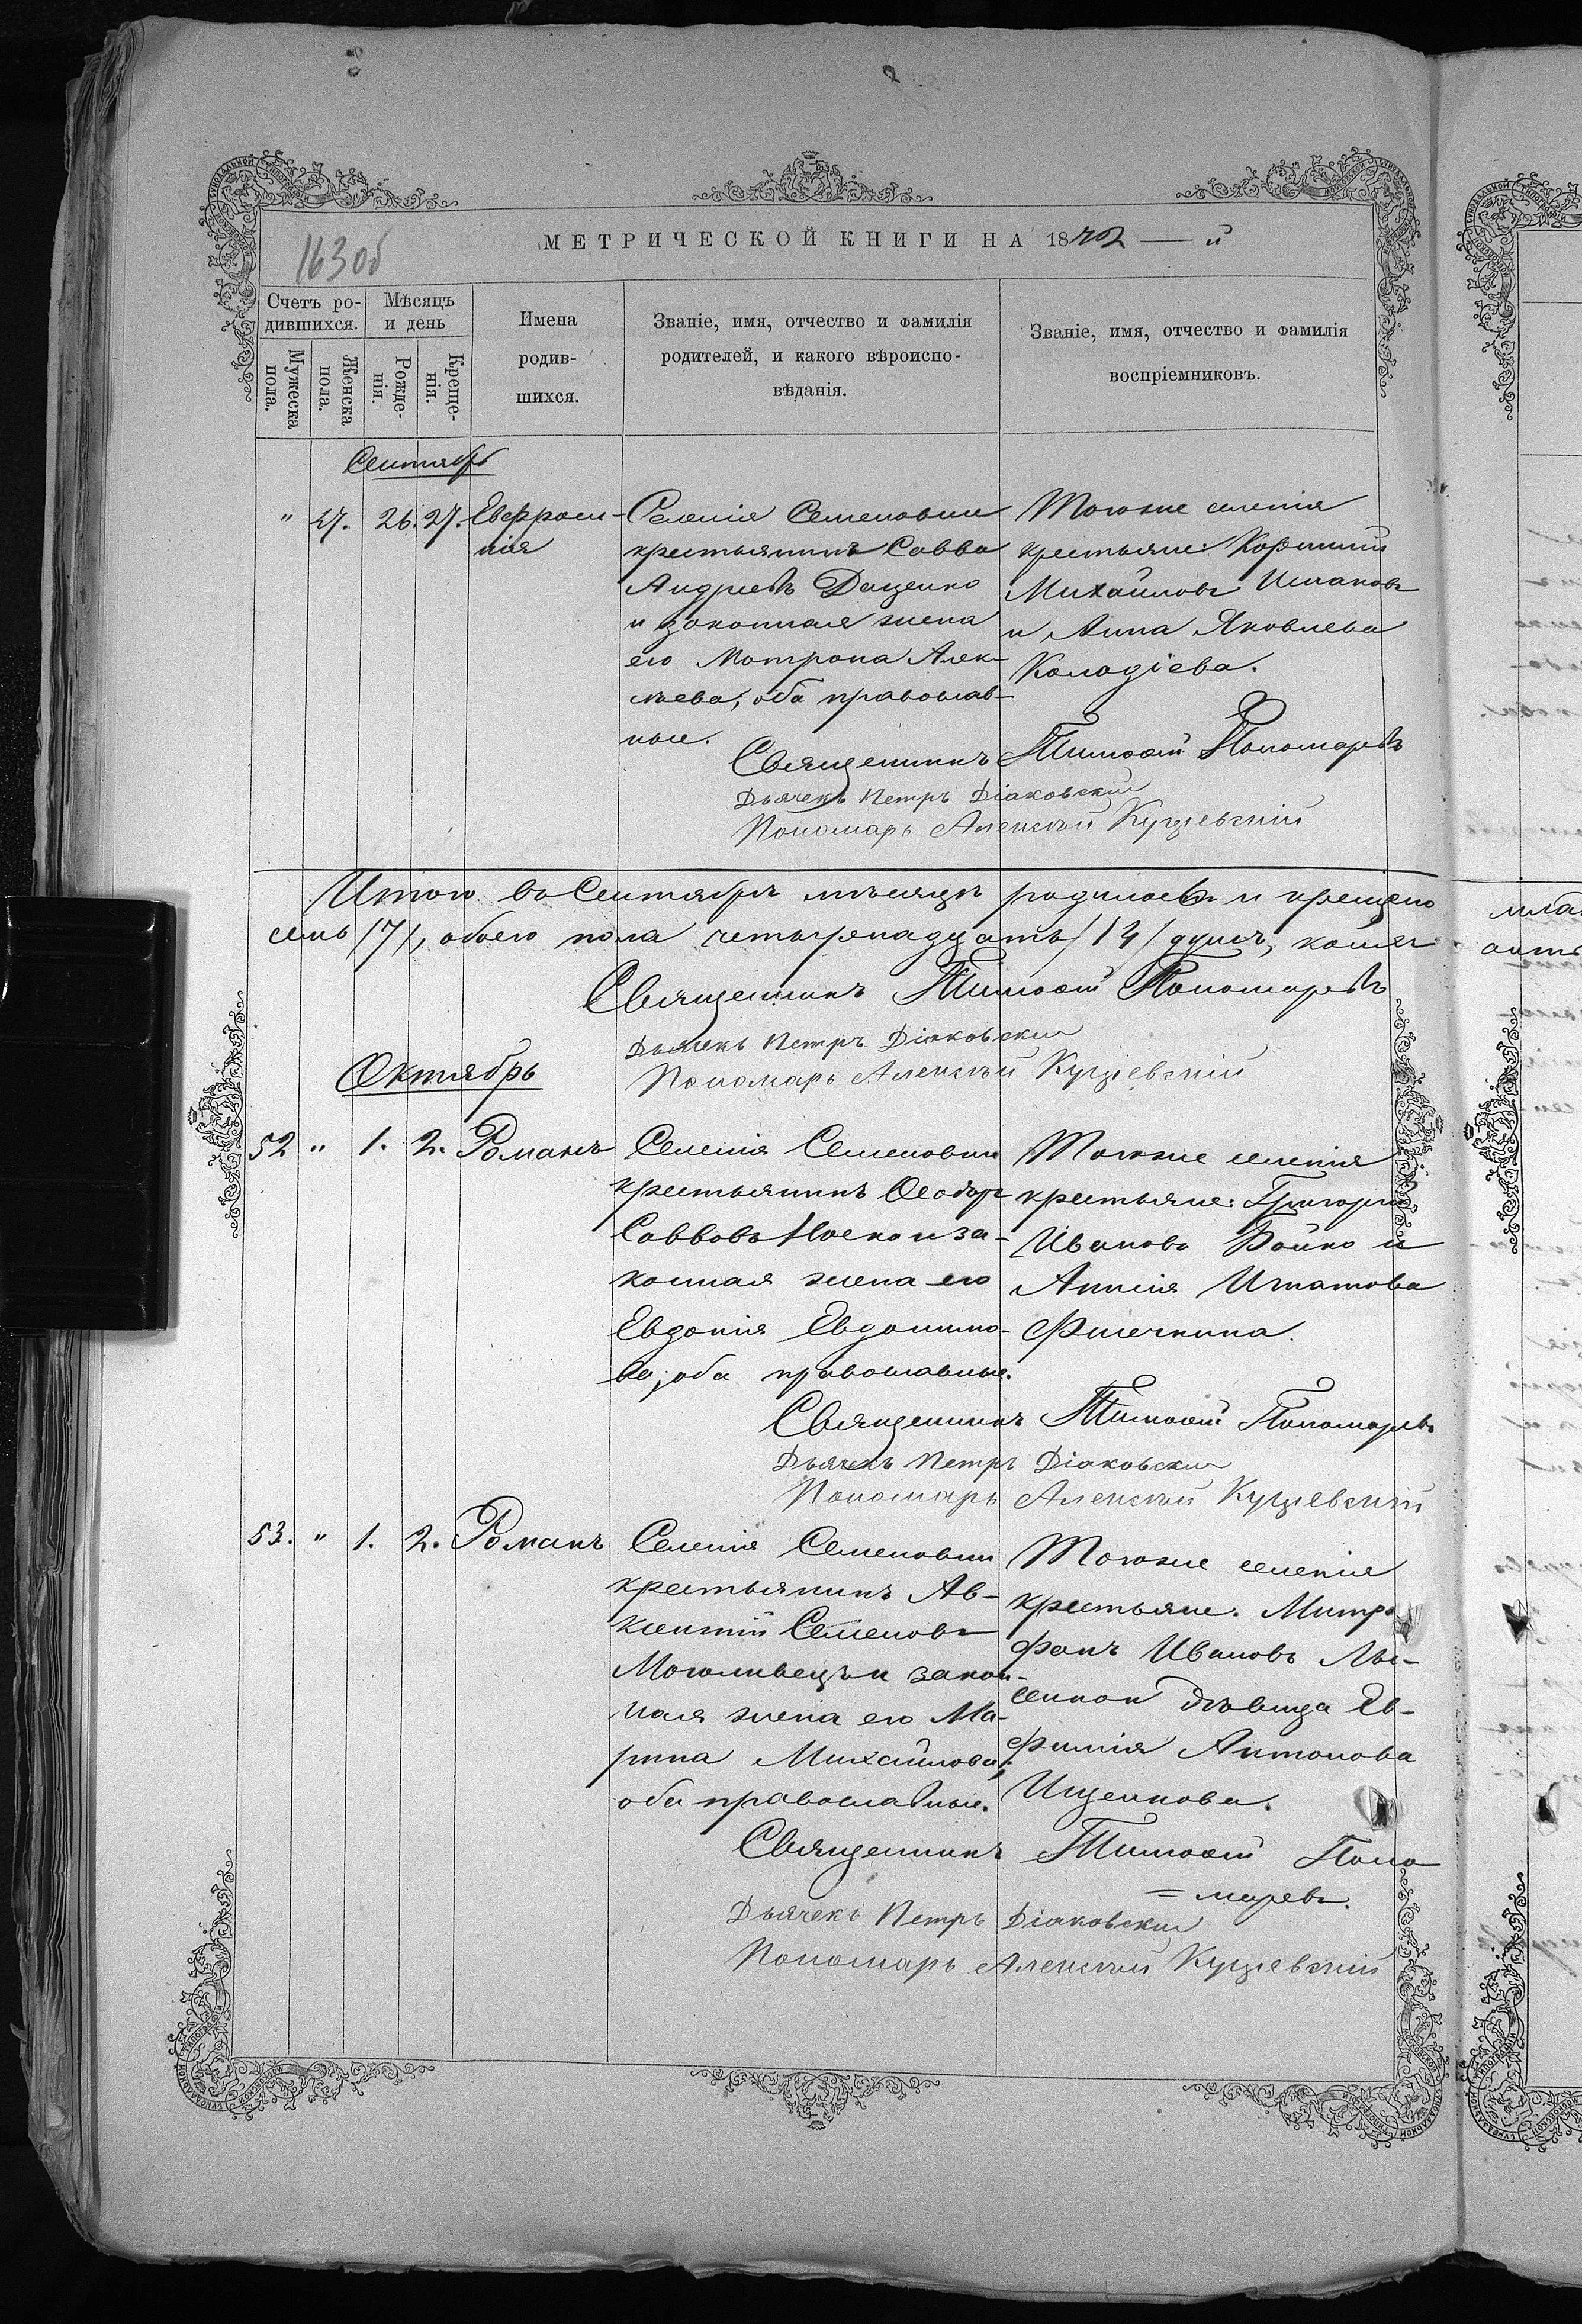 163 об
МЕТРИЧЕСКОЙ КНИГИ НА 1872 — й
Счетъ ро-
дившихся.
Мѣсяцъ
и день
Имена
родив-
шихся.
Званіе, имя, отчество и фамилія
родителей, и какого вѣроиспо-
вѣданія.
Званіе, имя, отчество и фамилія
воспріемниковъ.
Мужеска
пола.
Женска
пола.
Рожде-
нія.
Креще-
нія.
Сентябрь
" 47. 26. 27. Евфроси-
нія
Селенія Семеновки
крестьянинъ Савва
Андреевъ Даценко
и законная жена
его Мотрона Алек-
сѣева, оба православ-
ные.
Тогоже селенія
крестьяне:
Михайловъ
и Анна Яковлева
Колодіева.
Священникъ Тимоѳей Пономаревъ
Дьячекъ Петръ Діаковскій
Пономарь Алексѣй Кущевскій
Итого въ Сентябрѣ мѣсяцѣ родилось и крещено
семь /7/, обоего пола четырнадцать /14/ душъ,
Священникъ Тимоѳей Пономаревъ
Дьячекъ Петръ Діаковскій
Пономарь Алексѣй Кущевскій
Октябрь
52 " 1. 2. Романъ
Селенія Семеновки
крестьянинъ Ѳеодоръ
Саввовъ и за-
конная жена его
Евдокія Евдокимо-
ва, оба православные.
Тогоже селенія
крестьяне: Григорій
Ивановъ Бойко и
Анисія Игнатова
Священникъ Тимоѳей Пономаревъ
Дьячекъ Петръ Діаковскій
Пономарь Алексѣй Кущевскій
53. " 1. 2. Романъ
Селенія Семеновки
крестьянинъ Ав-
ксентій Семеновъ
Могиливецъ и закон-
ная жена его Ма-
рина Михайлова,
оба православные.
Тогоже селенія
крестьяне: Митро
фанъ Ивановъ Лы-
сенко и дѣвица Ев-
фимія Антонова
Ищенкова.
Священникъ Тимоѳей Поно
= маревъ.
Дьячекъ Петръ Діаковскій
Пономарь Алексѣй Кущевскій